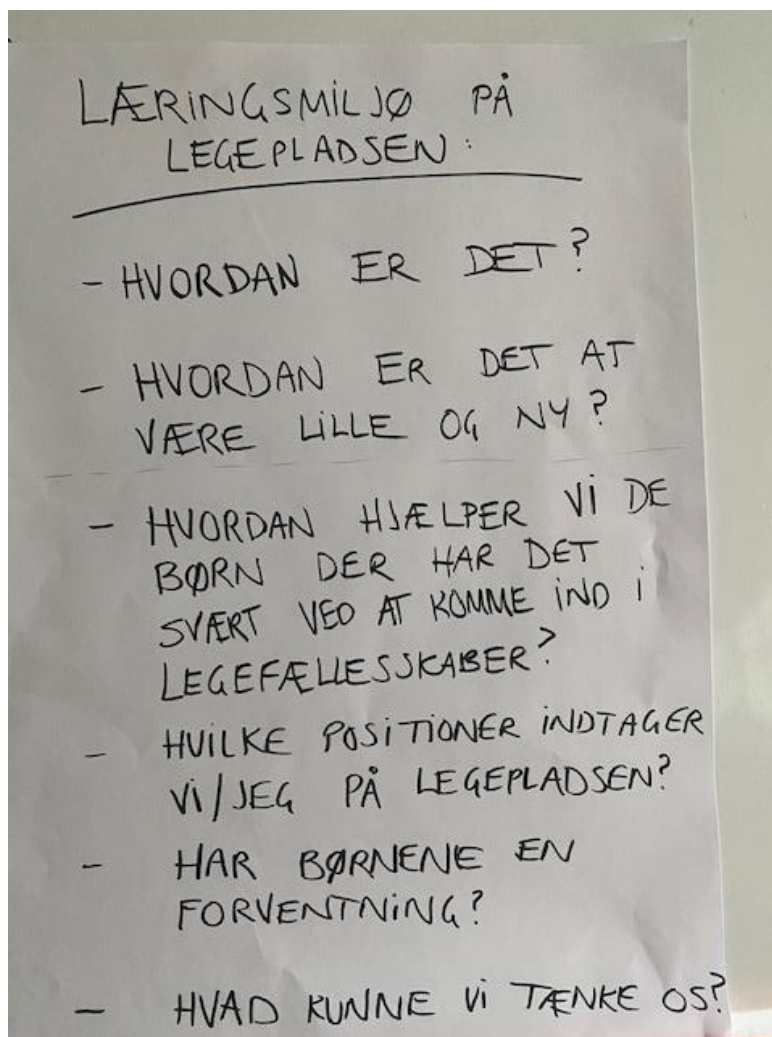 LÆRINGSMILJØ PÅ
LEGEPLADSEN:
- HVORDAN ER DET?
- HVORDAN ER DET AT
VÆRE LILLE OG NY?
- HVORDAN HJÆLPER VI DE
BØRN DER HAR DET
SVÆRT VED AT KOMME IND I
LEGEFÆLLESSKABER?
- HVILKE POSITIONER INDTAGER
VI/JEG PÅ LEGEPLADSEN?
- HAR BØRNENE EN
FORVENTNING?
- HVAD KUNNE VI TÆNKE OS?